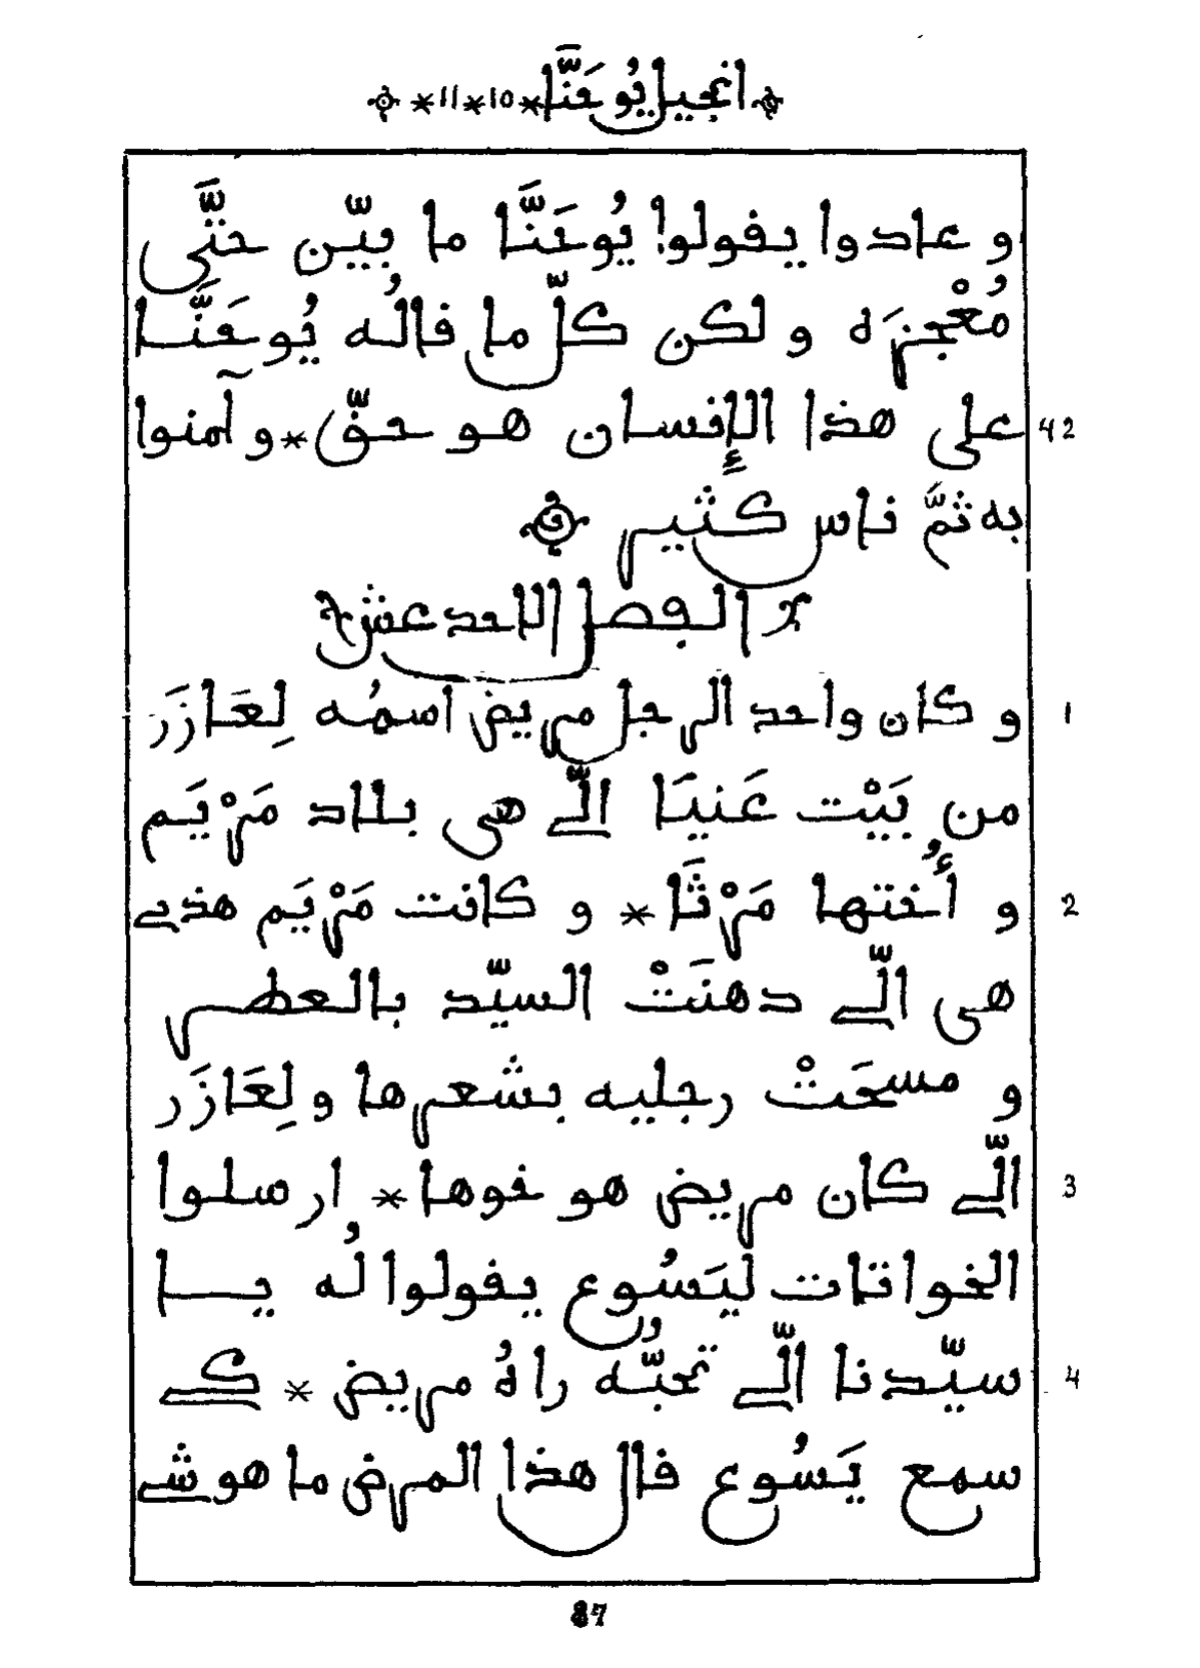 انجيل يُوحَنَّا * 10 * 11 *
و عادوا يقولوا يُوحَنَّا ما بيّن حتَّى
مُعْجِزَه و لكن كلّ ما قالُه يُوحَنَّا
على هذا الإنسان هو حقّ * و آمنوا 42
به ثمَّ ناس كثير
الفصل الاحدعش
و كان واحد الرجل مريض اسمُه لِعَازَر 1
من بَيْت عَنيَا الّي هي بلاد مَرْيَم
و أُختها مَرْثَا * و كانت مَرْيَم هذي 2
هي الّي دهنَتْ السيّد بالعطر
و مسحَتْ رجليه بشعرها و لِعَازَر
الّي كان مريض هو خوها * ارسلوا 3
الخواتات ليَسُوع يقولوا لُه يا
سيّدنا الّي تحبُّه راهُ مريض * كي 4
سمع يَسُوع قال هذا المرض ما هو شي
87